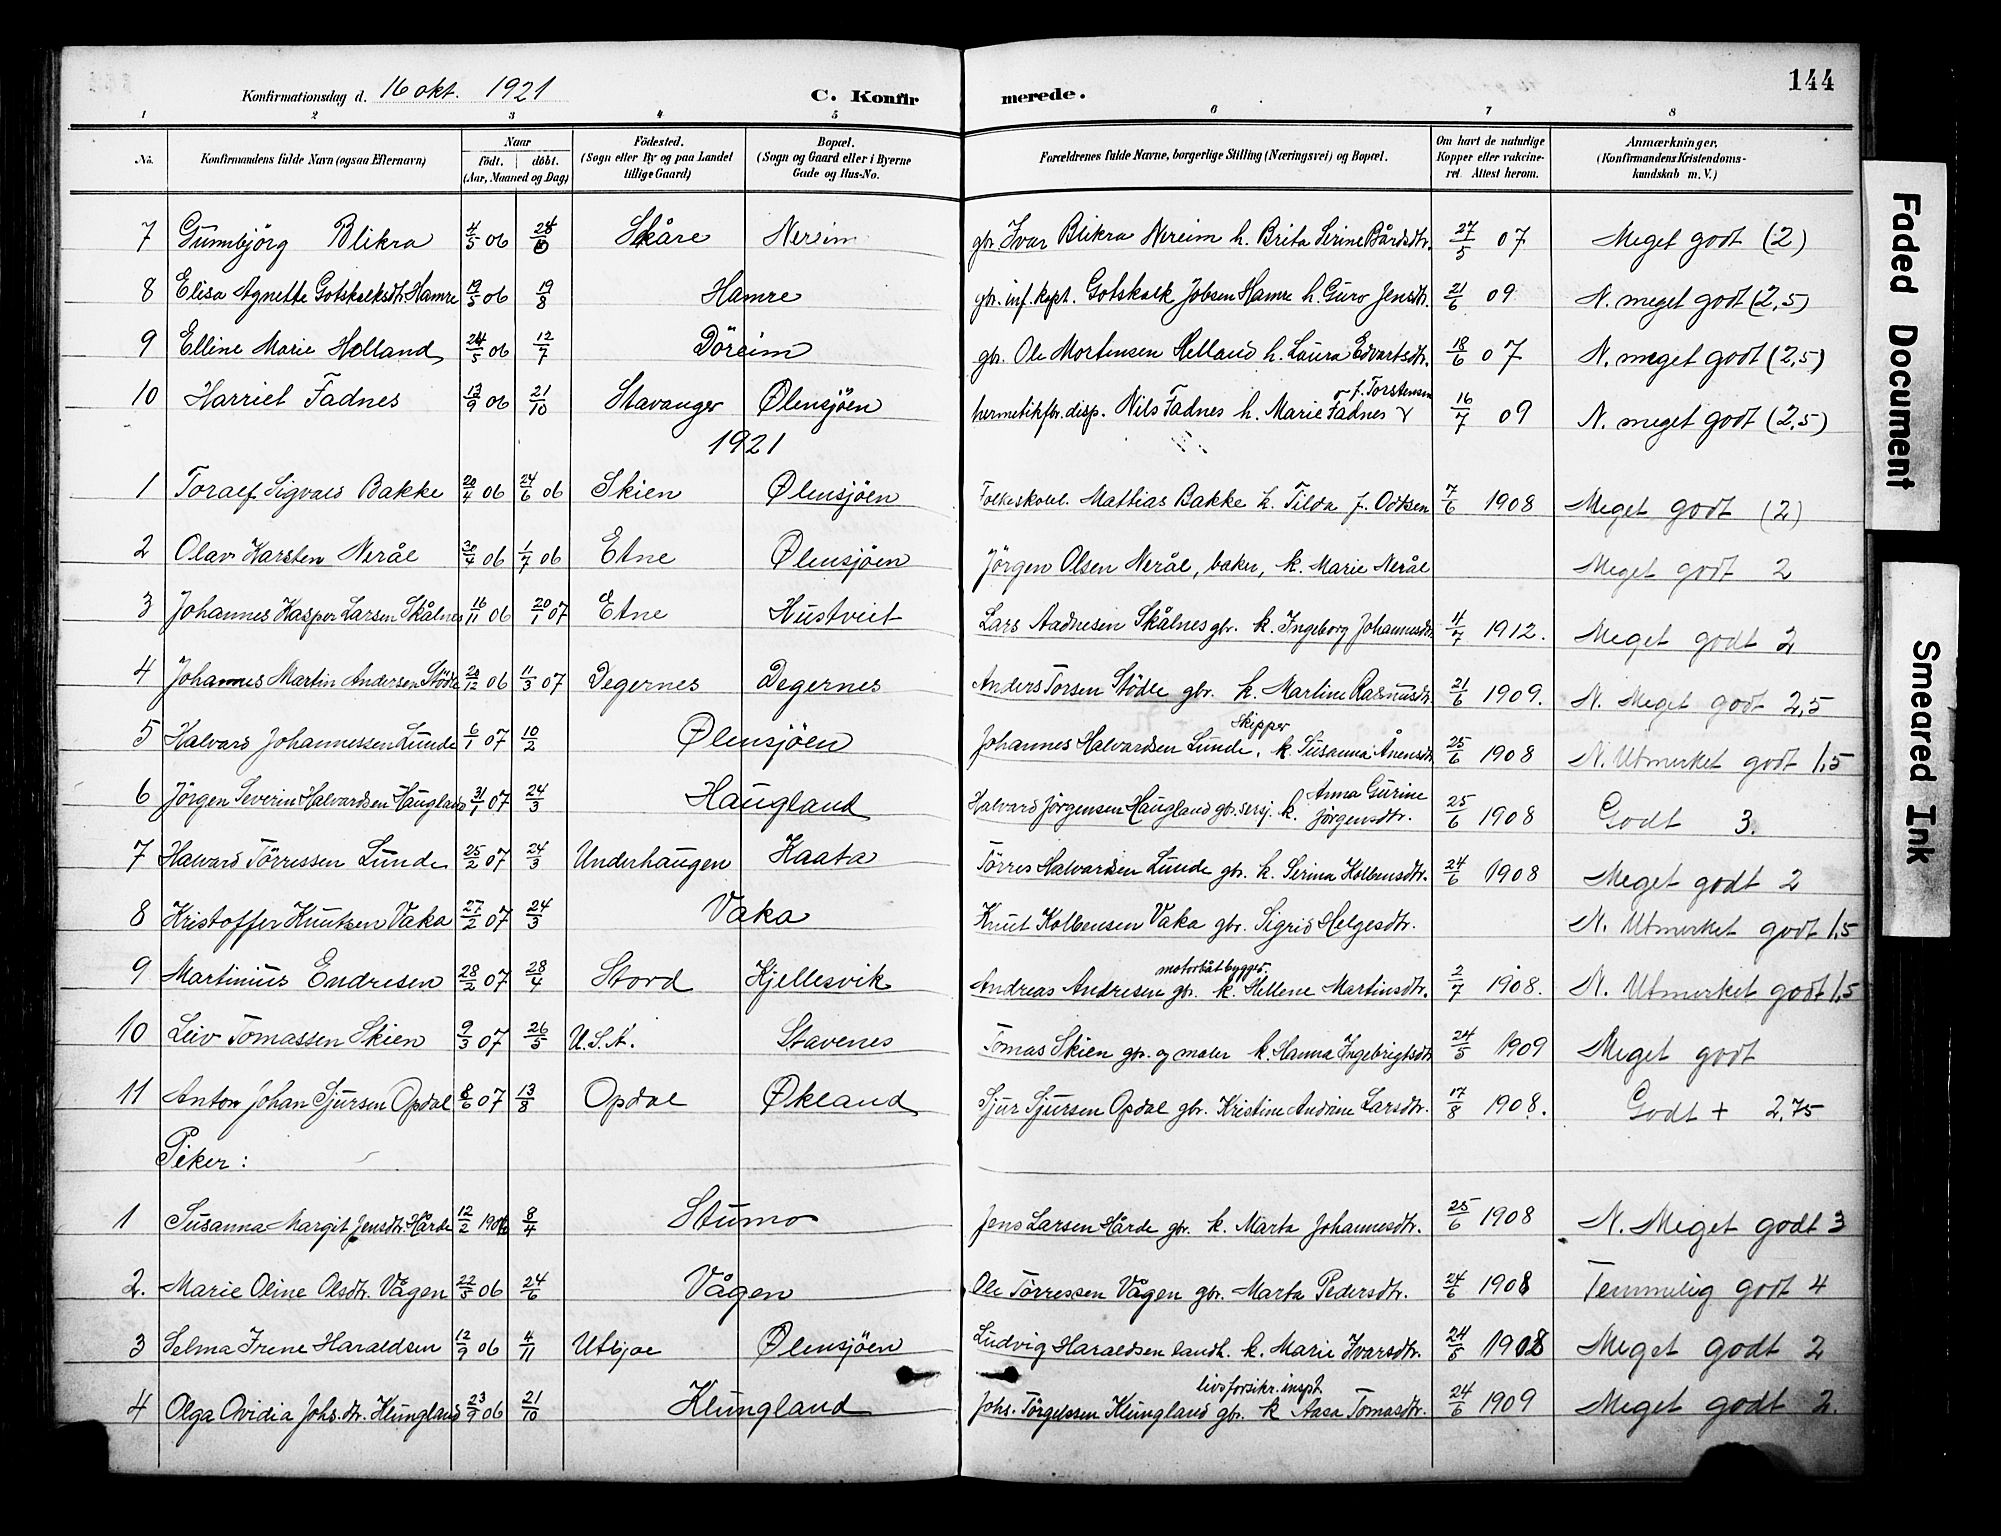 Konfirmationsdag d. 16 okt. 1921 C. Konfirmerede. 144
1 2 3 4 5 6 7 8
No. Konfirmandens fulde Navn (ogsaa Efternavn) Naar födt. döbt. (Aar, Maaned og Dag) Födested. (Sogn eller By og paa Landet tillige Gaard) Bopæl. (Sogn og Gaard eller i Byerne Gade og Hus-No. Forældrenes fulde Navne, borgerlige Stilling (Næringsvei) og Bopæl. Om havt de naturlige Kopper eller vakcineret Attest herom. Anmærkninger. (Konfirmandens Kristendomskundskab m. V.)
7 Gunnbjörg Blikra 4/5 06 Skåre Nereim gbr. Ivar Blikra Nereim h. Brita Serine Bårdsdtr. 27/5 07 Meget godt (2)
8 Elisa Agnethe Gotskalksdtr. Hamre 19/5 06 19/8 Hamre gbr. inf. kapt. Gotskalk Jobsen Hamre h. Guro Jensdtr. 21/6 09 N. meget godt (2,5)
9 Elline Marie Helland 24/5 06 12/7 Döreim gbr. Ole Mortensen Helland h. Laura Edvartsdtr. 18/6 07 N. meget godt (2,5)
10 Harriet Fadnes 13/9 06 21/10 Stavanger Ølensjöen hermetikfbr. disp. Nils Fadnes h. Marie Fadnes f. Torstensen 16/7 09 N. meget godt (2,5)
1921
1 Toralf Sigvald Bakke 20/4 06 24/6 06 Skien Ølensjöen Folkeskolel. Mathias Bakke h. Tilda f. Oddsen 7/6 1908 Meget godt (2)
2 Olav Karsten Nerål 30/4 06 1/7 06 Etne Ølensjöen Jörgen Olsen Nerål, baker, k. Marie Nerål Meget godt 2
3 Johannes Kasper Larsen Skålnes 16/11 06 20/1 07 Etne Hustveit Lars Aadnesen Skålnes gbr. k. Ingeborg Johannesdtr. 4/7 1912. Meget godt 2
4 Johannes Martin Andersen Stödle 20/12 06 11/3 07 Degernes Degernes Anders Torsen Stödle gbr. k. Martine Rasmusdtr. 21/6 1909. N. Meget godt 2,5
5 Halvard Johannessen Lunde 6/1 07 10/2 Ølensjöen Johannes Halvardsen Lunde, Skipper k. Susanna Ånensdtr. 25/6 1908 N. Utmerket godt 1,5
6 Jörgen Severin Halvardsen Haugland 31/1 07 24/3 Haugland Halvard Jörgensen Haugland gbr. sersj. k. Anna Gurine Jörgensdtr. 25/6 1908 Godt 3.
7 Halvard Törressen Lunde 25/2 07 24/3 Underhaugen Kaata Törres Halvardsen Lunde gbr. k. Serina Kolbensdtr. 24/6 1908 Meget godt 2
8 Kristoffer Knutsen Vaka 27/2 07 24/3 Vaka Knut Kolbensen Vaka gbr. Sigrid Helgesdtr. N. Utmerket godt 1,5
9 Martinius Endresen 28/2 07 28/4 Stord Kjellesvik Andreas Andresen gbr. motorbåtbygger. k. Hellene Martinsdtr. 2/7 1908. N. Utmerket godt 1,5
10 Leiv Tomassen Skien 9/3 07 26/5 U.S.A. Stavenes Tomas Skien gbr. og maler k. Hanna Ingebrigtsdtr 24/5 1909 Meget godt
11 Anton Johan Sjursen Opdal 8/6 07 13/8 Opdal Økland Sjur Sjursen Opdal gbr. Kristine Andrine Larsdtr. 17/8 1908. Godt + 2,75
Piker:
1 Susanna Margit Jensdtr. Hårde 12/2 1906 8/4 Stumo Jens Larsen Hårde gbr. k. Marta Johannesdtr. 25/6 1908 N. Meget godt 3
2. Marie Oline Olsdtr. Vågen 22/5 06 24/6 Vågen Ole Törressen Vågen gbr. Marta Pedersdtr. 24/6 1908 Temmelig godt 4
3 Selma Irene Haraldsen 12/9 06 4/11 Utbjoe Ølensjöen Ludvig Haraldsen landh. k. Marie Ivarsdtr. 24/5 1908 Meget godt 2
4 Olga Ovidia Johs.dtr. Klungland 23/9 06 21/10 Klungland Johs. Törgelssen Klungland gbr. livsforsikr. inspt. k Aasa Tomasdtr. 24/6 1909 Meget godt 2.
Faded Document
Smeared Ink